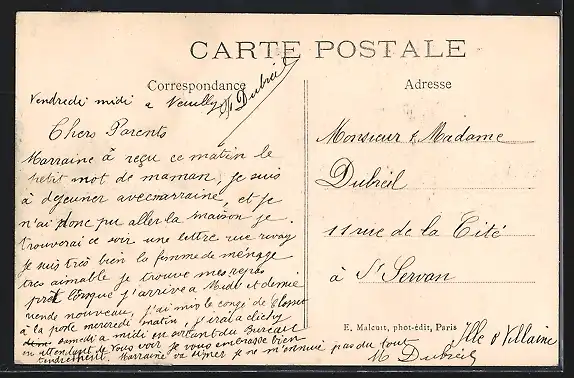 CARTE POSTALE
Correspondance
Adresse
Vendredi midi a Neuilly
M Dubreil
Chers Parents
Marraine à reçu ce matin le
petit mot de maman, je suis
à dejeuner avec marraine, et je
n'ai donc pu aller la maison je
trouverai ce soir une lettre rue
je suis tres bien la femme de ménage
tres aimable je trouve mes repas
prêt lorsque j'arrive a Midi et demie
nouveau, j'ai mis le congé de
à la poste mercredi matin, j'irai a clichy
samedi a midi en sortant du Bureau
en attendant de vous voir je vous embrasse bien
tendrement. Marraine va signer je ne m'ennuie pas du tout
M Dubreil
Monsieur & Madame
Dubreil
11 rue de la Cité
à St Servan
E. Malcuit, phot-édit, Paris
Ille & Villaine